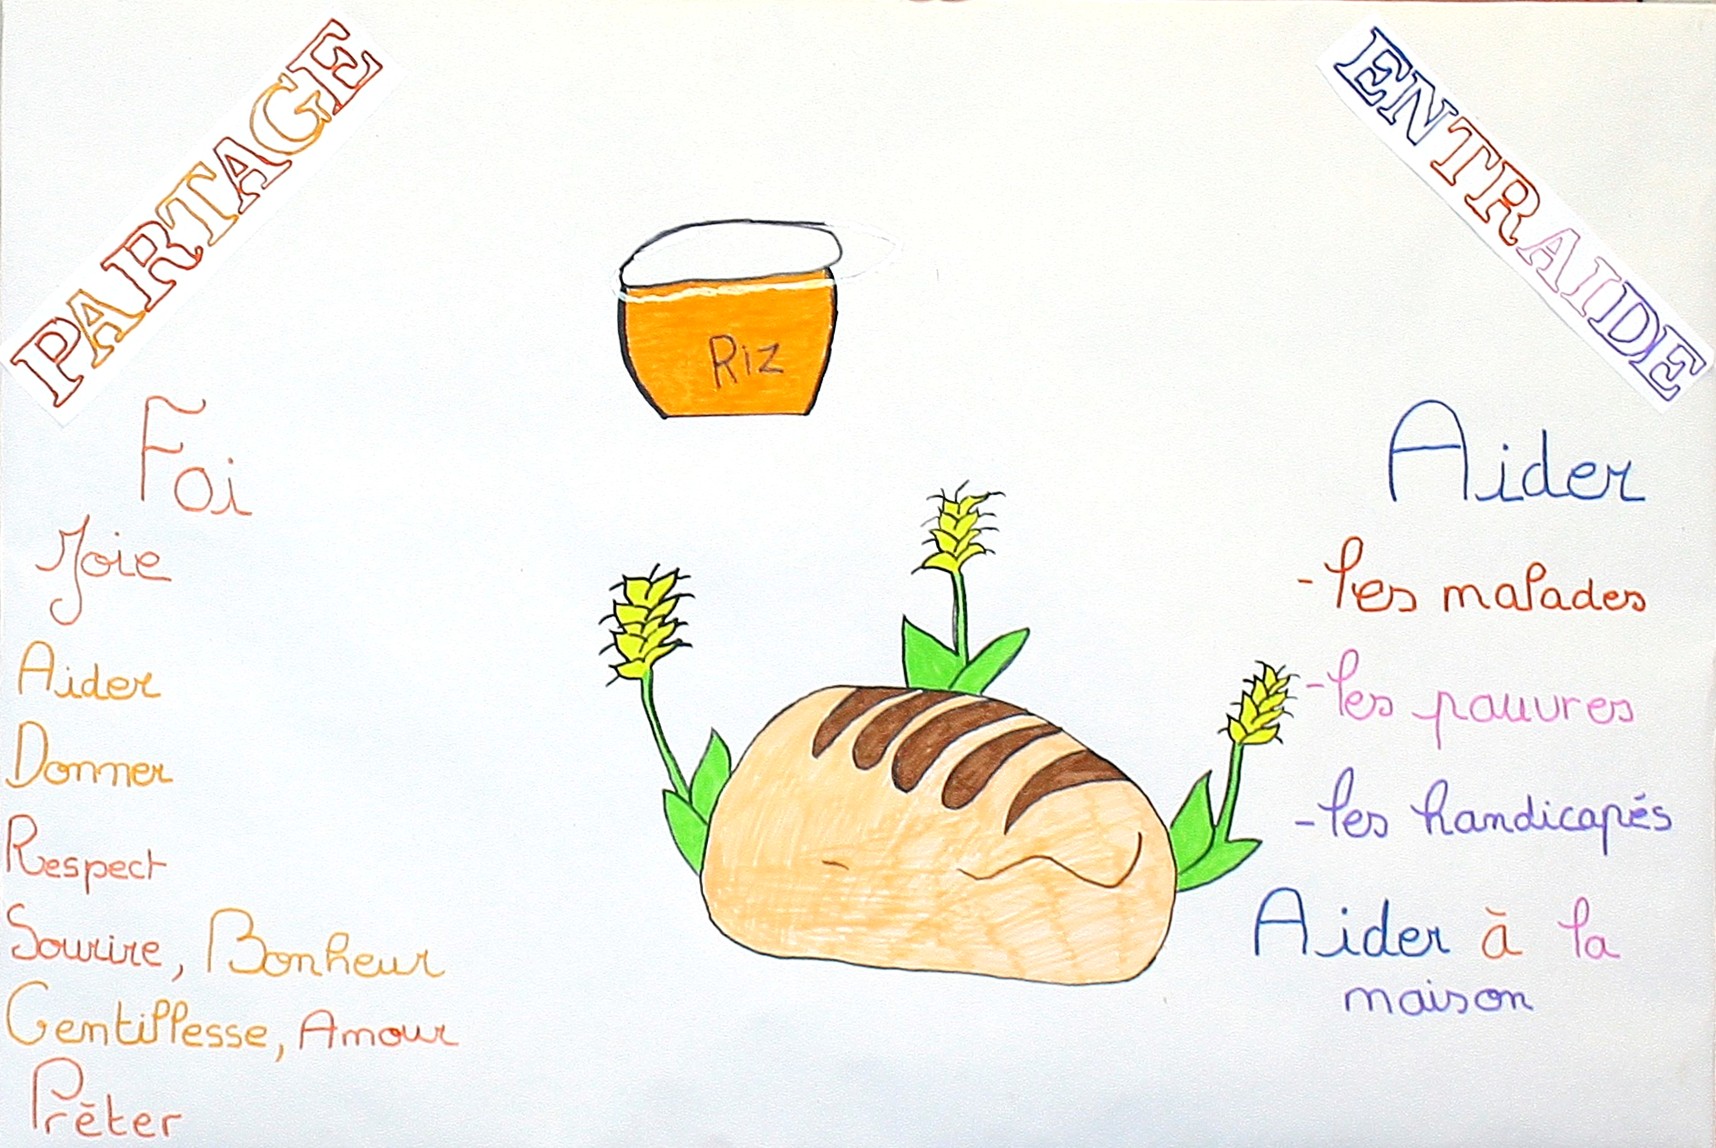 PARTAGE
Foi
Joie
Aider
Donner
Respect
Sourire, Bonheur
Gentillesse, Amour
Prêter
Riz
ENTRAIDE
Aider
-les malades
-les pauvres
-les handicapés
Aider à la
maison